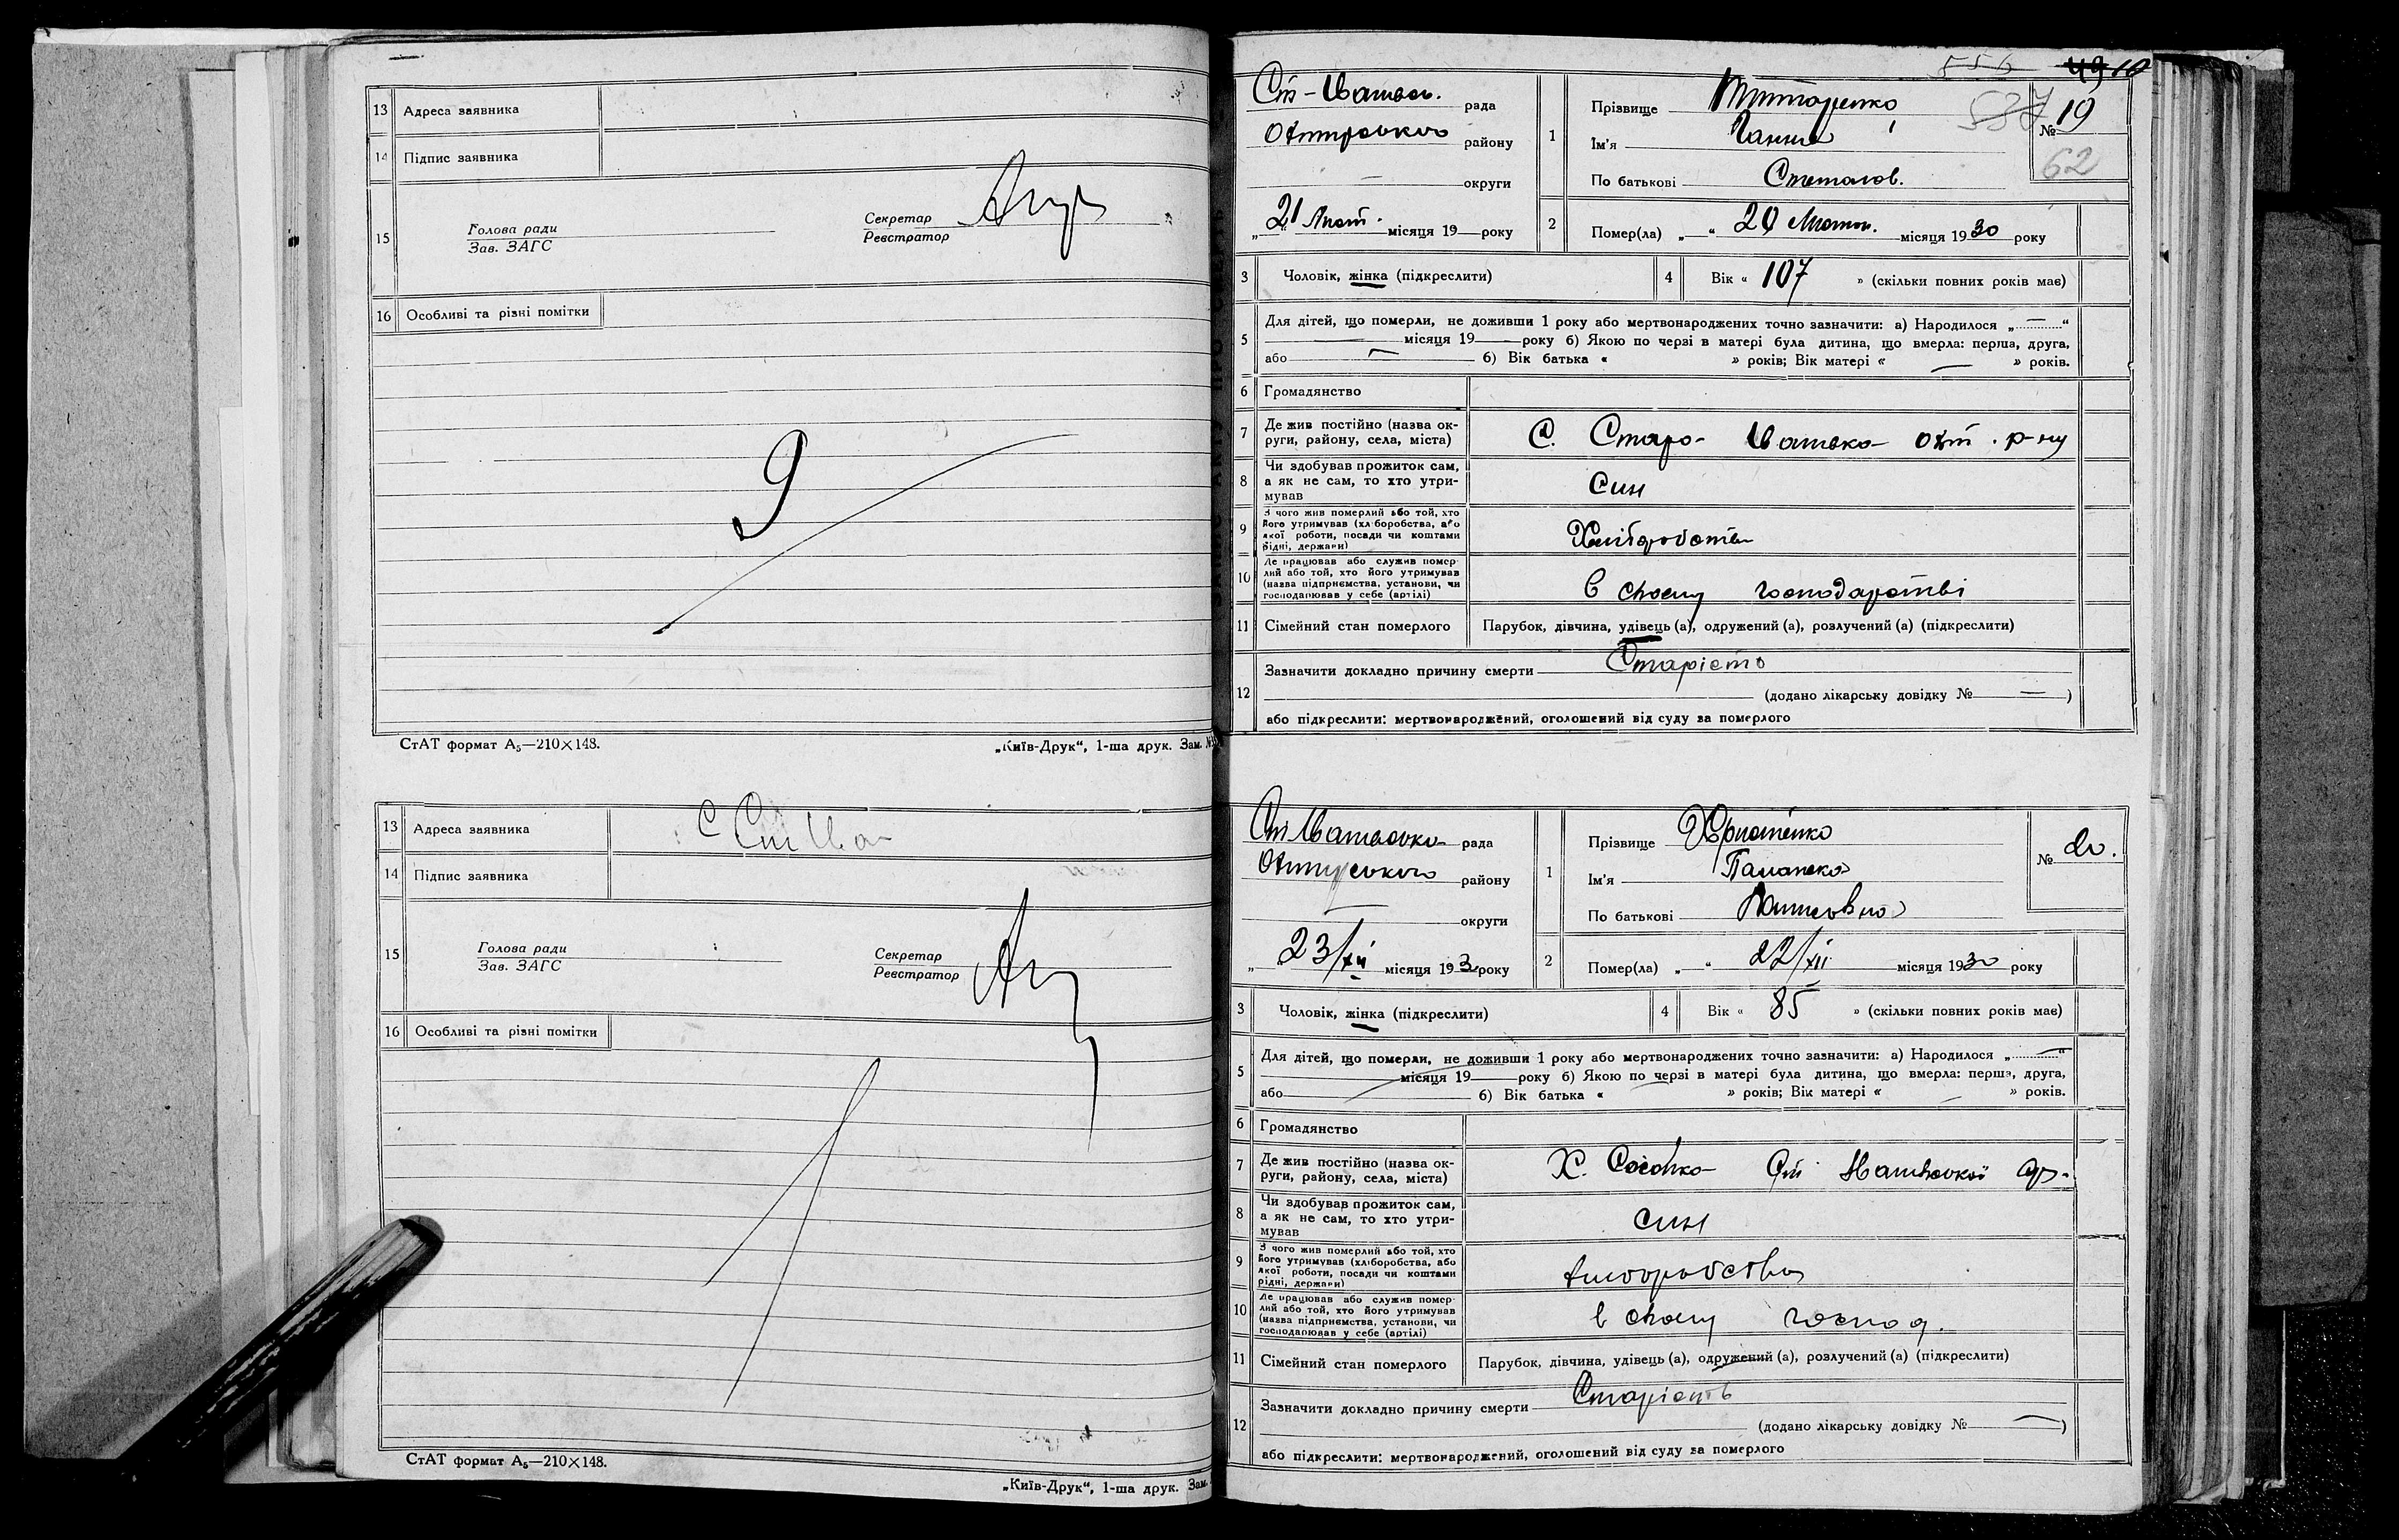 13 Адреса заявника
14 Підпис заявника
15 Голова ради
Зав. ЗАГС
Секретар
Реєстратор
16 Особливі та різні помітки
9
СтАТ формат А5—210×148.
„Київ-Друк“, 1-ша друк. Зам.
13 Адреса заявника
14 Підпис заявника
15 Голова ради
Зав. ЗАГС
Секретар
Реєстратор
16 Особливі та різні помітки
СтАТ формат А5—210×148.
„Київ-Друк“, 1-ша друк. Зам.
556 49 10
рада
Охтирського району
округи
„21 Лют. місяця 19 року
1 Прізвище Титаренко
Ім'я Ганна
По батькові
537
№ 19
62
2 Помер(ла) „ “ 20 Лютого місяця 1930 року
3 Чоловік, жінка (підкреслити)
4 Вік « 107 » (скільки повних років має)
5 Для дітей, що померли, не доживши 1 року або мертвонароджених точно зазначити: а) Народилося „ “
місяця 19 року б) Якою по черзі в матері була дитина, що вмерла: перша, друга,
або 6) Вік батька « » років; Вік матері « » років.
6 Громадянство
7 Де жив постійно (назва ок-
руги, району, села, міста)
С. Старо-Іванівка Охт. р-ну
8 Чи здобував прожиток сам,
а як не сам, то хто утри-
мував
Син
9 З чого жив померлий або той, хто
його утримував (хліборобства, або
якої роботи, посади чи коштами
рідні, держави)
Хліборобства
10 Де працював або служив помер-
лий або той, хто його утримував
(назва підприємства, установи, чи
господарював у себе (артілі)
в своєму господарстві
11 Сімейний стан померлого Парубок, дівчина, удівець (а), одружений (а), розлучений (а) (підкреслити)
12 Зазначити докладно причину смерти Старість
(додано лікарську довідку № — )
або підкреслити: мертвонароджений, оголошений від суду за померлого
рада
Охтирського району
округи
„ 23/XII місяця 193 року
1 Прізвище Христенко
Ім'я
По батькові
№ 20.
2 Помер(ла) „ “ 22/XII місяця 1930 року
3 Чоловік, жінка (підкреслити)
4 Вік « 85 » (скільки повних років має)
5 Для дітей, що померли, не доживши 1 року або мертвонароджених точно зазначити: а) Народилося „ “
місяця 19 року б) Якою по черзі в матері була дитина, що вмерла: перша, друга,
або 6) Вік батька « » років; Вік матері « » років.
6 Громадянство
7 Де жив постійно (назва ок-
руги, району, села, міста)
Х. Ст. Іванівської
8 Чи здобував прожиток сам,
а як не сам, то хто утри-
мував
син
9 З чого жив померлий або той, хто
його утримував (хліборобства, або
якої роботи, посади чи коштами
рідні, держави)
хліборобства
10 Де працював або служив помер-
лий або той, хто його утримував
(назва підприємства, установи, чи
господарював у себе (артілі)
в своєму господ.
11 Сімейний стан померлого Парубок, дівчина, удівець (а), одружений (а), розлучений (а) (підкреслити)
12 Зазначити докладно причину смерти Старість
(додано лікарську довідку № — )
або підкреслити: мертвонароджений, оголошений від суду за померлого